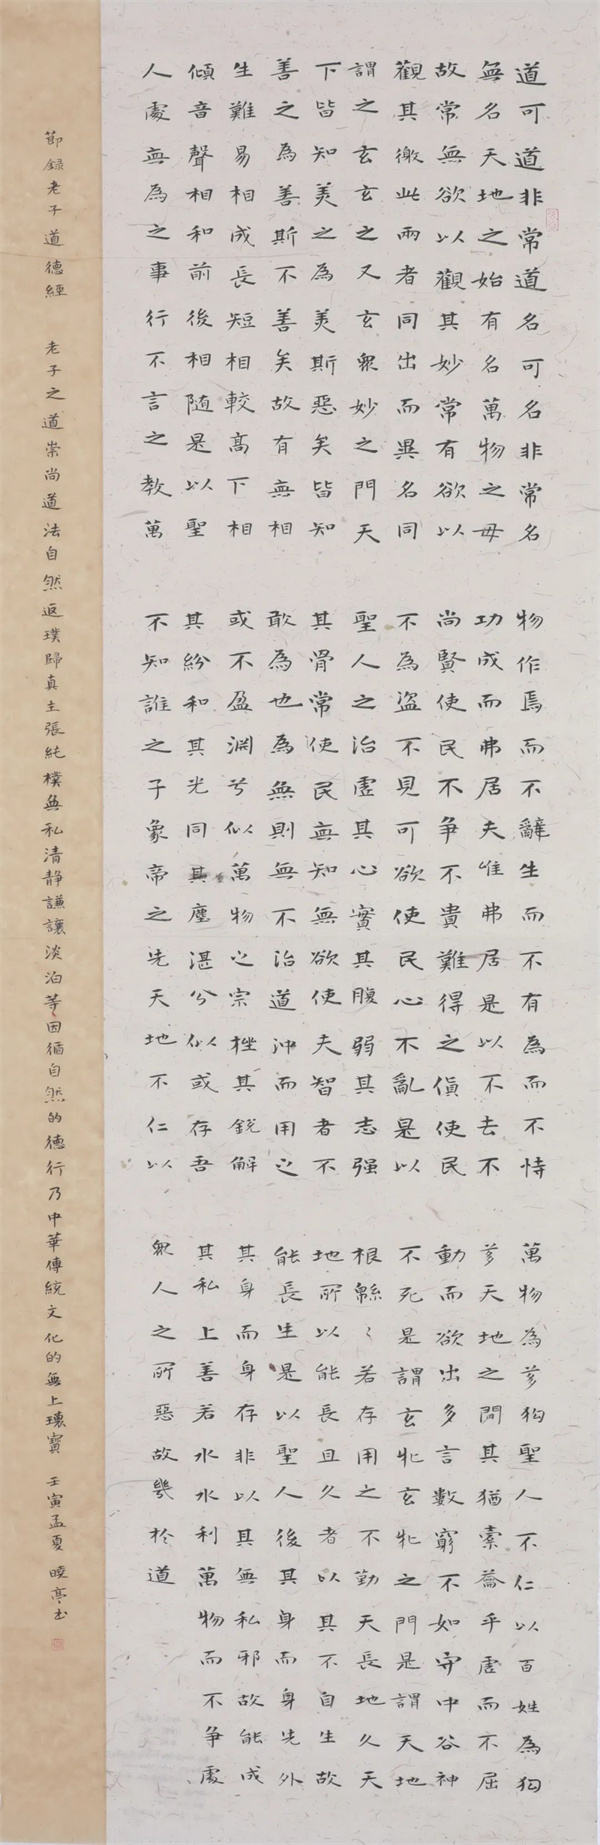 道可道非常道名可名非常名
無名天地之始有名萬物之母
故常無欲以觀其妙常有欲以
觀其徼此兩者同出而異名同
謂之玄玄之又玄眾妙之門天
下皆知美之為美斯惡矣皆知
善之為善斯不善矣故有無相
生難易相成長短相較高下相
傾音聲相和前後相随是以聖
人處無為之事行不言之教萬
物作焉而不辭生而不有為而不恃
功成而弗居夫唯弗居是以不去不
尚賢使民不争不貴難得之貨使民
不為盜不見可欲使民心不亂是以
聖人之治虛其心實其腹弱其志强
其骨常使民無知無欲使夫智者不
敢為也為無則無不治道沖而用之
或不盈淵兮似萬物之宗挫其銳解
其紛和其光同其塵湛兮似或存吾
不知誰之子象帝之先天地不仁以
萬物為芻狗聖人不仁以百姓為狗
芻天地之間其猶橐籥乎虛而不屈
動而欲出多言數窮不如守中谷神
不死是謂玄牝玄牝之門是謂天地
根緜〻若存用之不勤天長地久天
地所以能長且久者以其不自生故
能長生是以聖人後其身而身先外
其身而身存非以其無私邪故能成
其私上善若水水利萬物而不争處
眾人之所惡故幾於道
節録老子道德經 老子之道崇尚道法自然返璞歸真主張純樸無私清静謙讓淡泊等因循自然的德行乃中華傳統文化的無上瓌寶 壬寅孟夏 曉亭书